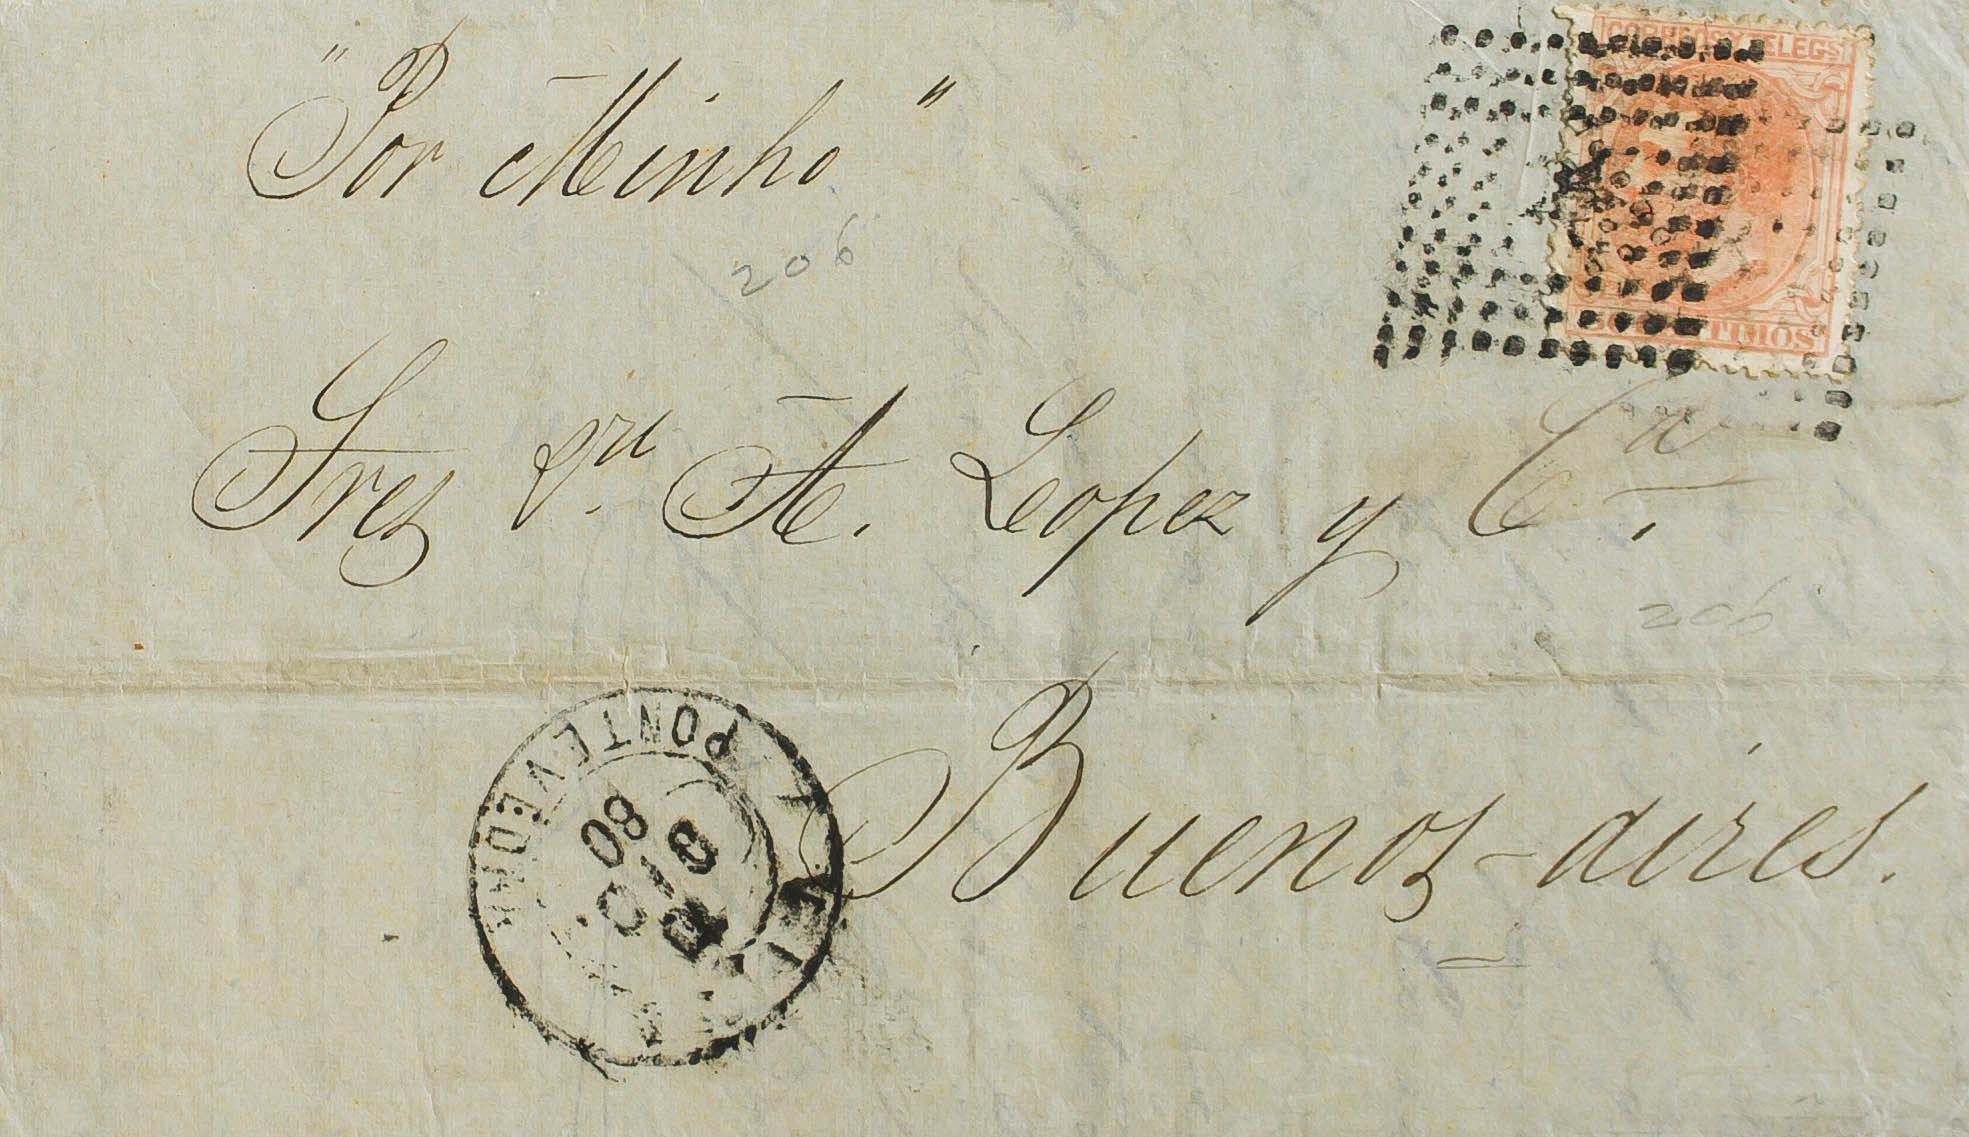 "Por Minho"
CORREOS Y TELEGS
206
Sres Dn A. Lopez y Ca.
206
PONTEVEDRA
80
Buenos-aires.